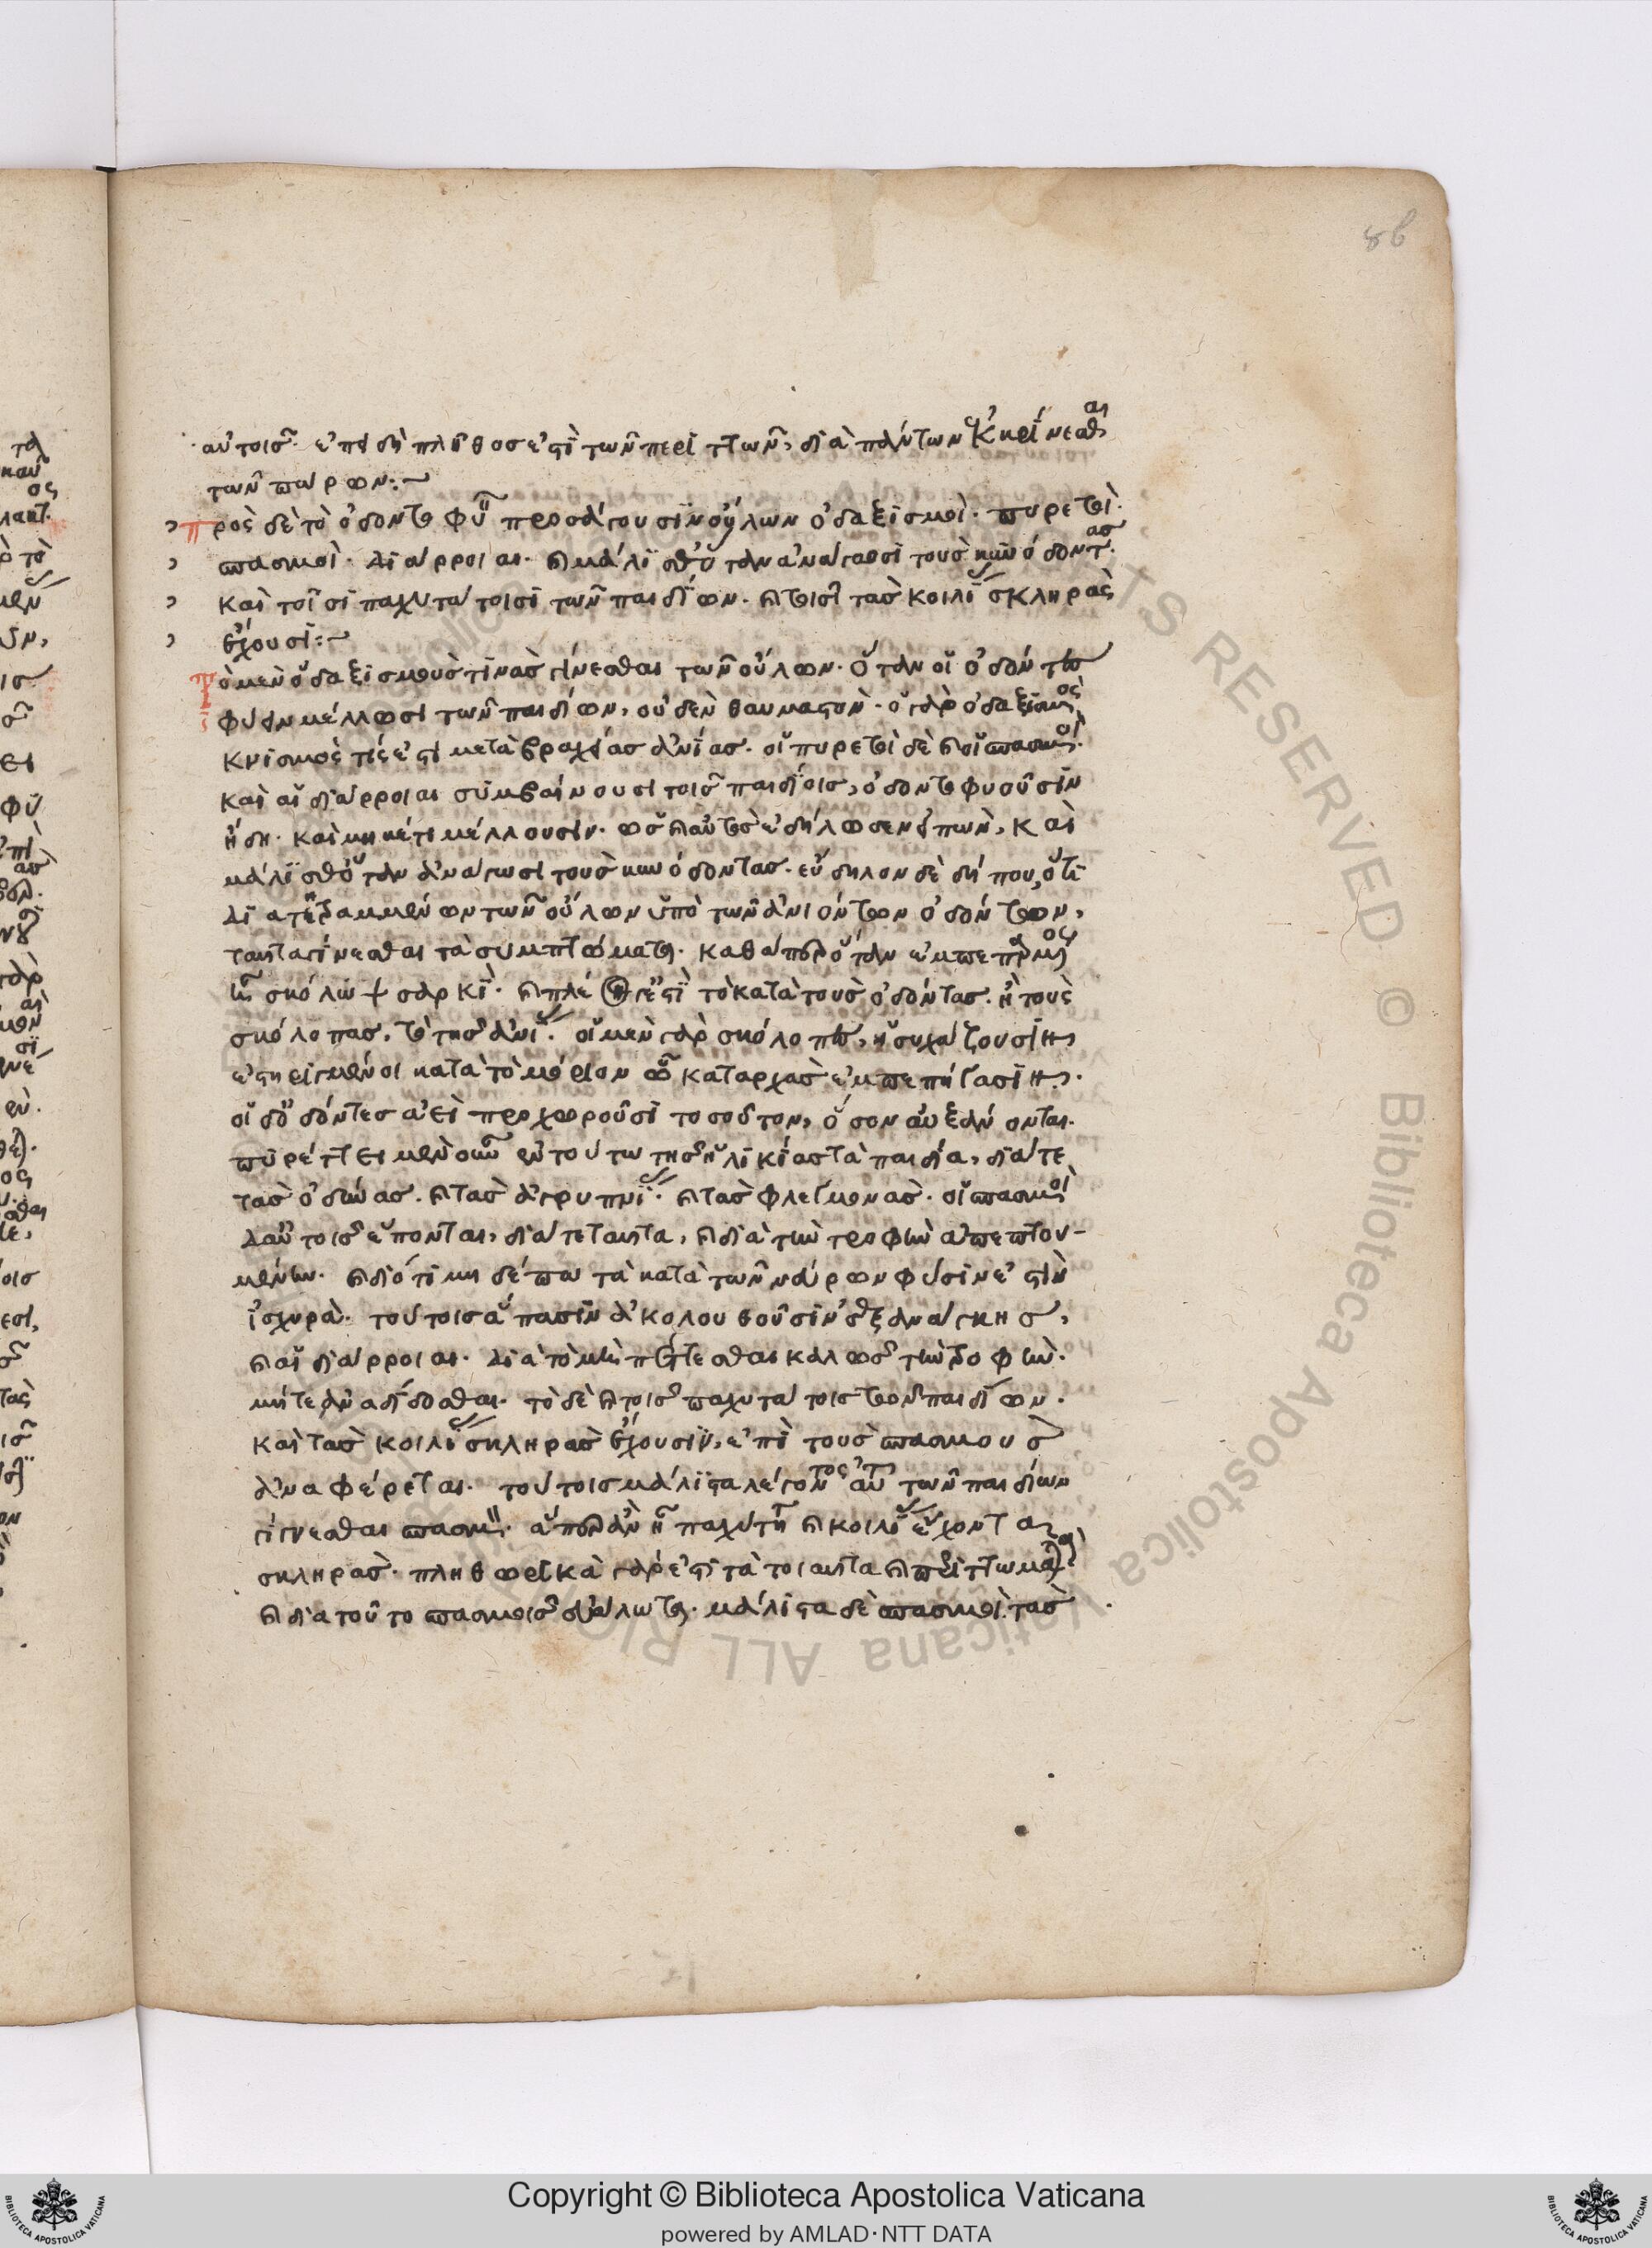 86
αὐτοῖς. ἐπειδὴ πλῆθος ἐστὶ τῶν περιττῶν, διὰ πάντων ἐκκρίνεσθαι
τῶν πόρων:~
πρὸς δὲ τὸ ὀδοντοφυεῖν προσάγουσιν οὔλων ὀδαξισμοὶ. πυρετοὶ.
σπασμοὶ. διάρροιαι. καὶ μάλισθ' ὅταν ἀνάγωσι τοὺς κυνόδοντας.
καὶ τοῖσι παχυτάτοισι τῶν παιδίων. καὶ τοῖσι τὰς κοιλίας σκληρὰς
ἔχουσι:~
τὸ μὲν ὀδαξισμοὺς τινὰς γίνεσθαι τῶν οὔλων. ὅταν οἱ ὀδόντες
φύειν μέλλωσι τῶν παιδίων, οὐδὲν θαυμαστὸν. ὁ γὰρ ὀδαξισμὸς,
κνισμός τίς ἐστι μετὰ βραχείας ἀνίας. οἱ πυρετοὶ δὲ καὶ οἱ σπασμοὶ.
καὶ αἱ διάρροιαι συμβαίνουσι τοῖς παιδίοις, ὀδοντοφυοῦσιν
ἤδη. καὶ μηκέτι μέλλουσιν. ὡς καὶ αὐτὸς ἐδήλωσεν εἰπὼν, καὶ
μάλισθ' ὅταν ἀνάγωσι τοὺς κυνόδοντας. εὔδηλον δὲ δήπου, ὅτι
διατετραμμένων τῶν οὔλων ὑπὸ τῶν ἀνιόντων ὀδόντων,
ταῦτα γίνεσθαι τὰ συμπτώματα. καθάπερ ὅταν ἐμπεπαρμένος
ᾖ σκόλοψ τῇ σαρκὶ. καὶ πλέον γ' ἐστὶ τὸ κατὰ τοὺς ὀδόντας. ἢ τοὺς
σκόλοπας, τὸ τῆς ἀνίας. οἱ μὲν γὰρ σκόλοπες, ἡσυχάζουσιν
ἐστηριγμένοι κατὰ τὸ μόριον ᾧ καταρχὰς ἐμπεπήγασιν.
οἱ δ' ὀδόντες ἀεὶ προχωροῦσι τοσοῦτον, ὅσον αὐξάνονται.
πυρέττει μὲν οὖν ἐν τούτῳ τῆς ἡλικίας τὰ παιδία, διά τε
τὰς ὀδύνας. καὶ τὰς ἀγρυπνίας. καὶ τὰς φλεγμονὰς. οἱ σπασμοὶ
δ' αὐτοῖς ἕπονται, διά τε ταῦτα, καὶ διὰ τὴν τροφὴν ἀπεπτου-
μένην. καὶ διότι μηδέπω τὰ κατὰ τῶν νεύρων φύσιν ἐστὶν
ἰσχυρὰ. τούτοις ἅπασιν ἀκολουθοῦσιν ἐξ ἀνάγκης,
καὶ αἱ διάρροιαι. διὰ τὸ μὴ πέττεσθαι καλῶς τὴν τροφὴν.
μήτε ἀναδίδοσθαι. τὸ δὲ καὶ τοῖς παχυτάτοις τῶν παιδίων.
καὶ τὰς κοιλίας σκληρὰς ἔχουσιν, ἐπὶ τοὺς σπασμοὺς
ἀναφέρεται. τούτοις μάλιστα λέγοντος αὐτοῦ τῶν παιδίων
γίγνεσθαι σπασμοὺς. ἅπερ ἂν ᾖ παχύτατα καὶ κοιλίας ἔχοντα
σκληρὰς. πληθωρικὰ γάρ ἐστι τὰ τοιαῦτα καὶ περιττωματικὰ.
καὶ διὰ τοῦτο σπασμοῖς εὐάλωτα. μάλιστα δὲ σπασμοὶ τὰς
Copyright © Biblioteca Apostolica Vaticana
powered by AMLAD·NTT DATA